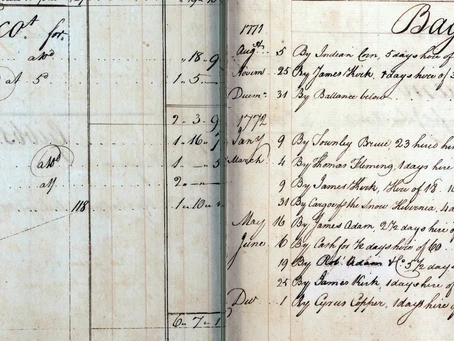 for.
18 - 9
at 5d
1 - 5 -
2 - 3 - 9
1 - 16 -
1 - - 5
2 - -
118
1 - 10 -
6 - 7 - 1
Bag
1771
Augst 5 By Indian Corn, 5 days hire of
Novem 25 By James Kirk, days hire of
Decem 31 By Ballance below
1772
Jany 9 By Townley Bruce, 23 hired
March 4 By Thomas Fleming, 1 days hire
9 By James Kirk, Hire of 18
31 By Cargo of the Snow Hibernia,
May 16 By James Adam, 2 1/2 days hire of
June 6 By Cash for 1/2 days hire of 60
19 By Robt Adam & Co 5 1/2 days
25 By James Kirk, 1 days hire of
Decr 1 By Cyrus Copper, 1 days hire of